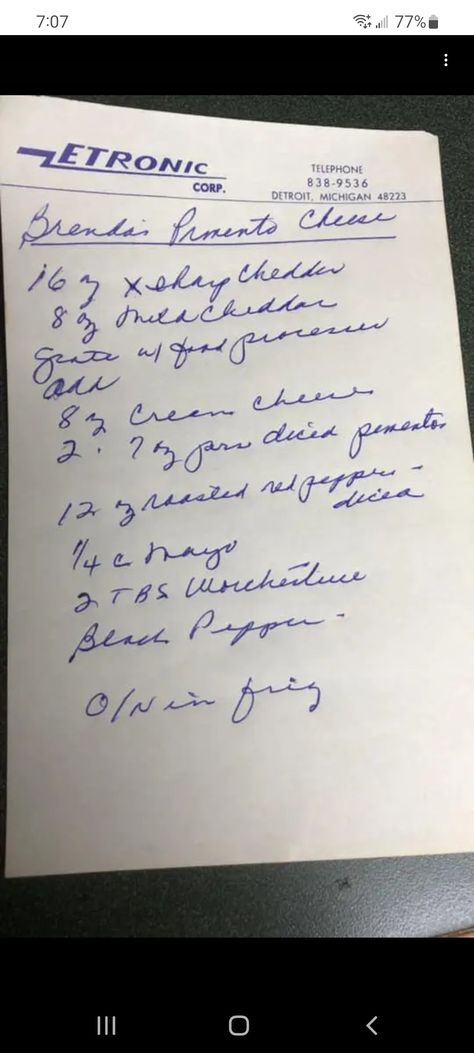 7:07
77%
ZETRONIC
CORP.
TELEPHONE
838-9536
DETROIT, MICHIGAN 48223
Brenda's Pimento Cheese
16 oz x sharp Cheddar
8 oz mild Cheddar
Grate w/ food processor
add
8 oz Cream Cheese
2 - 7 oz jars diced pimentos
12 oz roasted red pepper -
diced
1/4 c Mayo
2 TBS Worchesture
Black Pepper -
O/N in frig